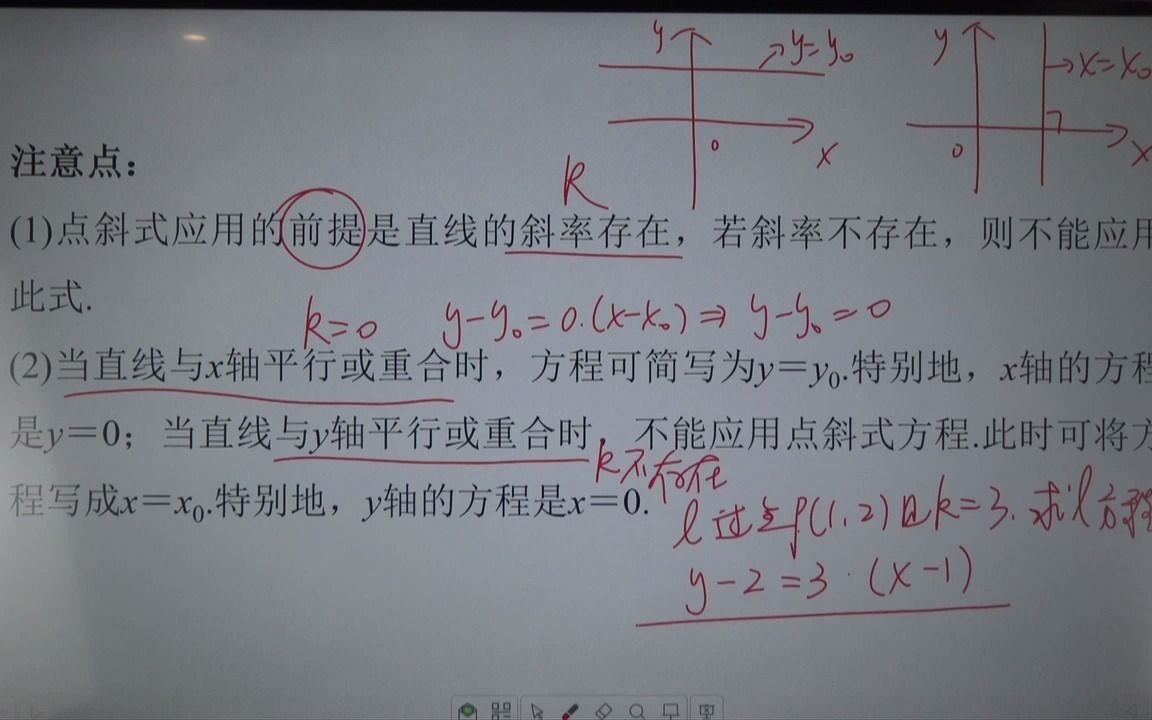 y
y=y₀
0
x
y
x=x₀
0
x
注意点：
k
(1)点斜式应用的前提是直线的斜率存在，若斜率不存在，则不能应用
此式.
k=0 y-y₀=0·(x-x₀)⇒y-y₀=0
(2)当直线与x轴平行或重合时，方程可简写为y=y₀.特别地，x轴的方程
是y=0；当直线与y轴平行或重合时，不能应用点斜式方程.此时可将方
k不存在
程写成x=x₀.特别地，y轴的方程是x=0.
l过点P(1,2)且k=3.求l方程
y-2=3·(x-1)